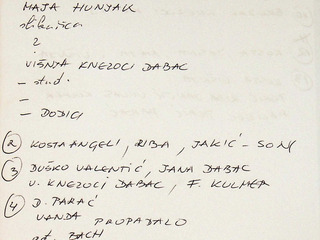 MAJA HUNJAK
slikarica
2
VIŠNJA KNEZOCI DABAC
- stud.
-
- DODICI
② KOSTA ANGELI, RIBA, JAKIĆ - SONJ
③ DUŠKO VALENTIĆ, JANA DABAC
V. KNEZOCI DABAC, F. KULMER
④ D. PARAĆ
VANDA PROPADALO
BACH